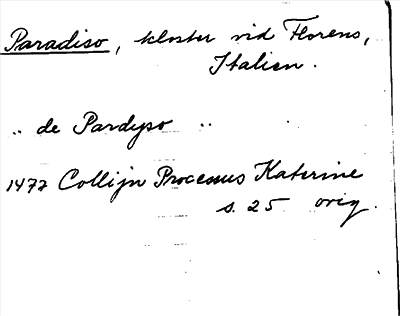 Paradiso, kloster vid Florens,
Italien.
.. de Pardyso ..
1477 Collijn Processus Katerine
s. 25 orig.